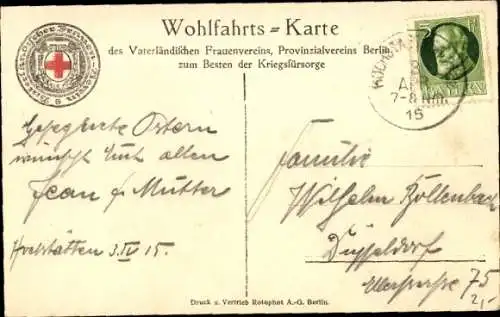 Wohlfahrts=Karte
des Vaterländischen Frauenvereins, Provinzialvereins Berlin,
zum Besten der Kriegsfürsorge
Vaterländischer Frauen-Verein
7-8 Nm
15
BAYERN
Gesegnete Ostern
wünscht Euch allen
Jean & Mutter
3.IV 15.
Familie
Wilhelm Bollenbach
Düsseldorf
75
2,-
Druck u. Vertrieb Rotophot A.-G. Berlin.